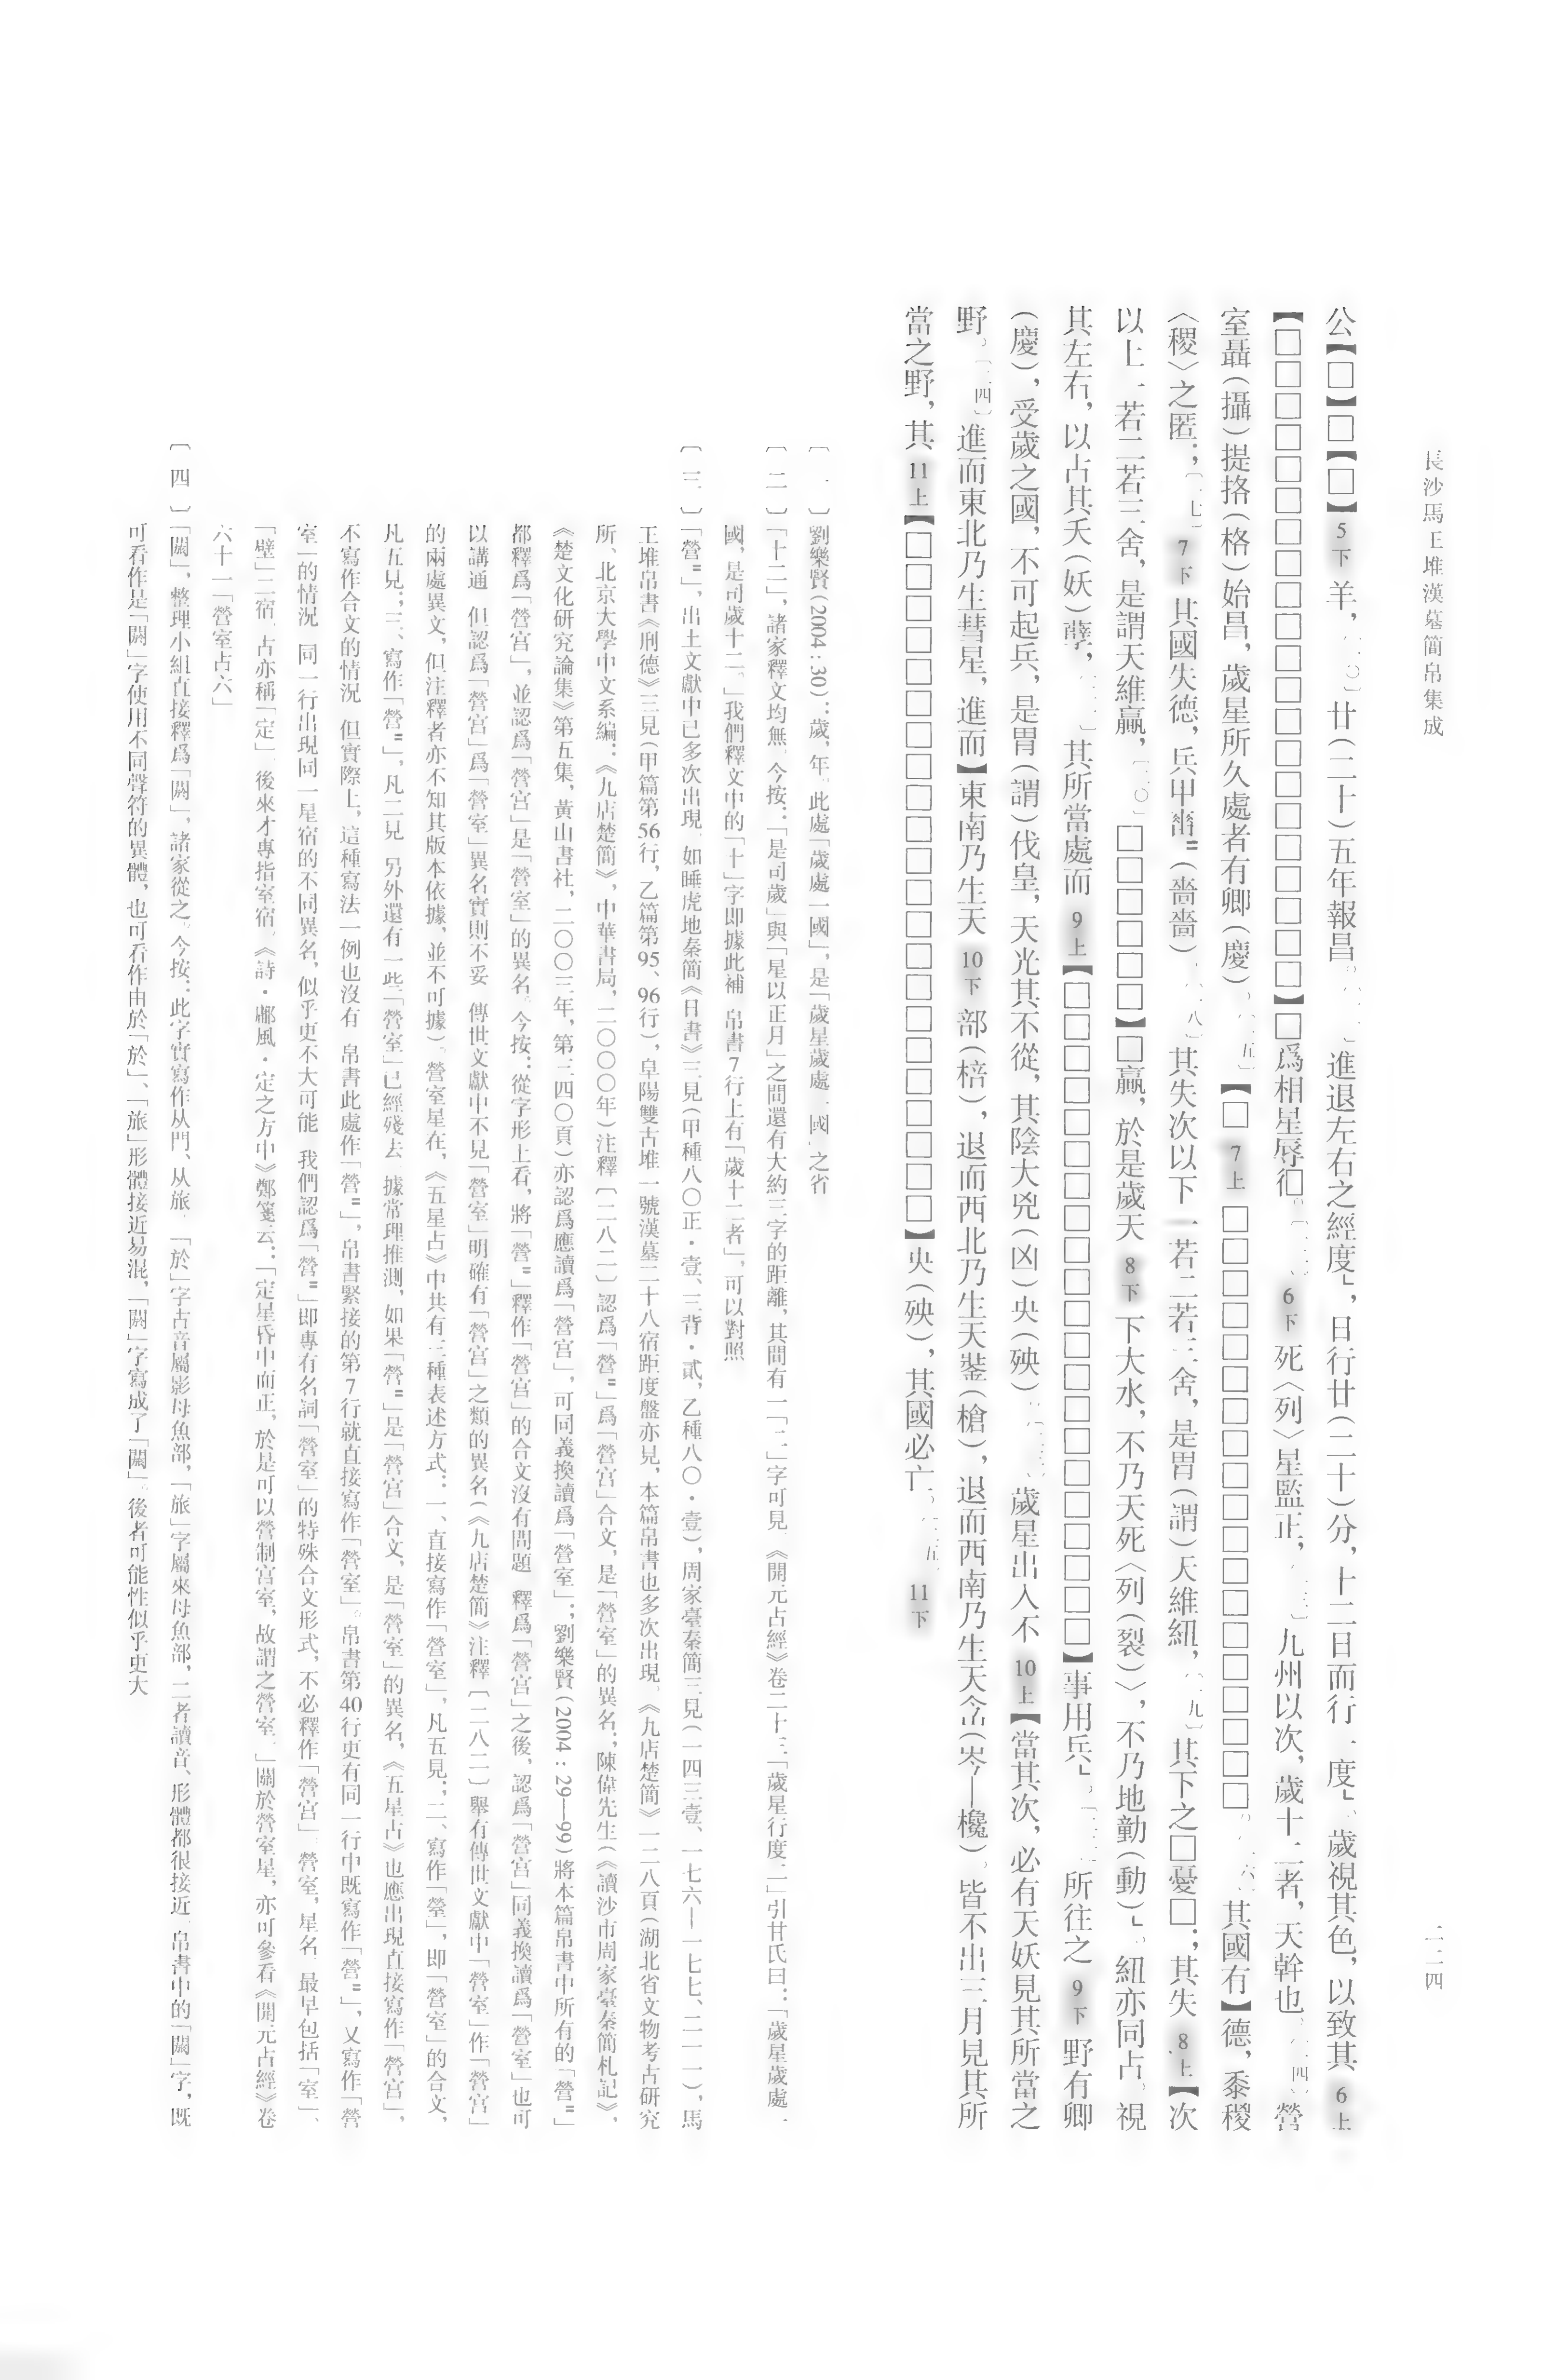 長沙馬王堆漢墓簡帛集成
二二四
公【□】□【□】5下羊，〔一〇〕廿（二十）五年報昌。〔一一〕進退左右之經度∟，日行廿（二十）分，十二日而行一度∟。歲視其色，以致其6上
【□□□□□□□□□□□□□□□□□□□□□】□爲相星辱彳□。〔一二〕6下死〈列〉星監正，〔一三〕九州以次，歲十二者，天幹也。〔一四〕營
室聶（攝）提挌（格）始昌，歲星所久處者有卿（慶）。〔一五〕【□7上□□□□□□□□□□□□□□□□□□□。〔一六〕其國有】德，黍稷
〈稷〉之匿；〔一七〕7下其國失德，兵甲嗇〓（嗇嗇）。〔一八〕其失次以下一若二若三舍，是胃（謂）天維紐，〔一九〕其下之□憂□；其失8上【次
以上一若二若三舍，是謂天維贏，〔二〇〕□□□□□□】□贏，於是歲天8下下大水，不乃天死〈列（裂）〉，不乃地勭（動）∟。紐亦同占。視
其左右，以占其夭（妖）孽，〔二一〕其所當處而9上【□□□□□□□□□□□□□□□□□□□□□】事用兵∟，〔二二〕所往之9下野有卿
（慶），受歲之國，不可起兵，是胃（謂）伐皇，天光其不從，其陰大兇（凶）央（殃）。〔二三〕歲星出入不10上【當其次，必有天妖見其所當之
野。〔二四〕進而東北乃生彗星，進而】東南乃生天10下部（棓），退而西北乃生天鋬（槍），退而西南乃生天（岑—欃）。皆不出三月見其所
當之野，其11上【□□□□□□□□□□□□□□□□□□□□】央（殃），其國必亡。〔二五〕11下
〔一〕劉樂賢（2004：30）：歲，年。此處「歲處一國」，是「歲星歲處一國」之省。
〔二〕「十二」，諸家釋文均無。今按：「是司歲」與「星以正月」之間還有大約三字的距離，其間有一「二」字可見。《開元占經》卷二十三「歲星行度二」引甘氏曰：「歲星歲處一
國，是司歲十二。」我們釋文中的「十」字即據此補。帛書7行上有「歲十二者」，可以對照。
〔三〕「營〓」，出土文獻中已多次出現。如睡虎地秦簡《日書》三見（甲種八〇正·壹、三背·貳，乙種八〇·壹），周家臺秦簡三見（一四三壹、一七六—一七七、二一一），馬
王堆帛書《刑德》三見（甲篇第56行，乙篇第95、96行），阜陽雙古堆一號漢墓二十八宿距度盤亦見，本篇帛書也多次出現。《九店楚簡》一二八頁（湖北省文物考古研究
所、北京大學中文系編：《九店楚簡》，中華書局，二〇〇〇年）注釋〔二八二〕認爲「營〓」爲「營宮」合文，是「營室」的異名；陳偉先生（《讀沙市周家臺秦簡札記》，
《楚文化研究論集》第五集，黃山書社，二〇〇三年，第三四〇頁）亦認爲應讀爲「營宮」，可同義換讀爲「營室」；劉樂賢（2004：29—99）將本篇帛書中所有的「營〓」
都釋爲「營宮」，並認爲「營宮」是「營室」的異名。今按：從字形上看，將「營〓」釋作「營宮」的合文沒有問題。釋爲「營宮」之後，認爲「營宮」同義換讀爲「營室」也可
以講通。但認爲「營宮」爲「營室」異名實則不妥。傳世文獻中不見「營室」明確有「營宮」之類的異名（《九店楚簡》注釋〔二八二〕舉有傳世文獻中「營室」作「營宮」
的兩處異文，但注釋者亦不知其版本依據，並不可據）。營室星在，《五星占》中共有三種表述方式：一、直接寫作「營室」，凡五見；二、寫作「塋」，即「營室」的合文，
凡五見；三、寫作「營〓」，凡二見。另外還有一些「營室」已經殘去。據常理推測，如果「營〓」是「營宮」合文，是「營室」的異名，《五星占》也應出現直接寫作「營宮」，
不寫作合文的情況。但實際上，這種寫法一例也沒有。帛書此處作「營〓」，帛書緊接的第7行就直接寫作「營室」。帛書第40行更有同一行中既寫作「營〓」，又寫作「營
室」的情況。同一行出現同一星宿的不同異名，似乎更不大可能。我們認爲「營〓」即專有名詞「營室」的特殊合文形式，不必釋作「營宮」。營室，星名，最早包括「室」、
「壁」二宿，占亦稱「定」，後來才專指室宿。《詩·鄘風·定之方中》鄭箋云：「定星昏中而正，於是可以營制宮室，故謂之營室。」關於營室星，亦可參看《開元占經》卷
六十一「營室占六」。
〔四〕「闂」，整理小組直接釋爲「閼」，諸家從之。今按：此字實寫作从門、从旅。「於」字古音屬影母魚部，「旅」字屬來母魚部，二者讀音、形體都很接近。帛書中的「」字，既
可看作是「閼」字使用不同聲符的異體，也可看作由於「於」、「旅」形體接近易混，「閼」字寫成了「」。後者可能性似乎更大。